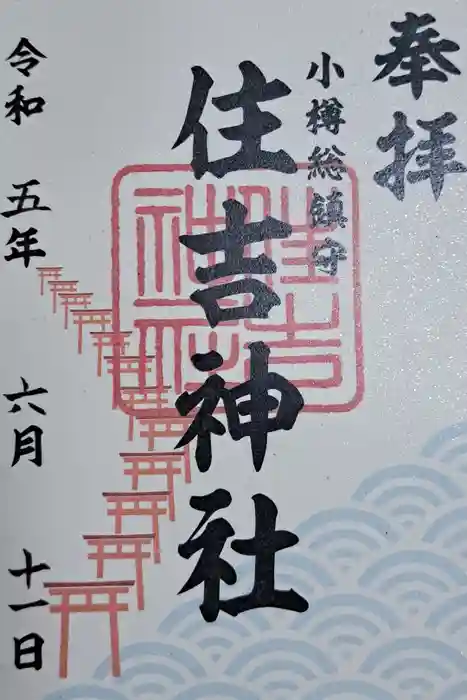 奉拝
小樽総鎮守
住吉神社
住吉
神社
令和 五年 六月 十一日